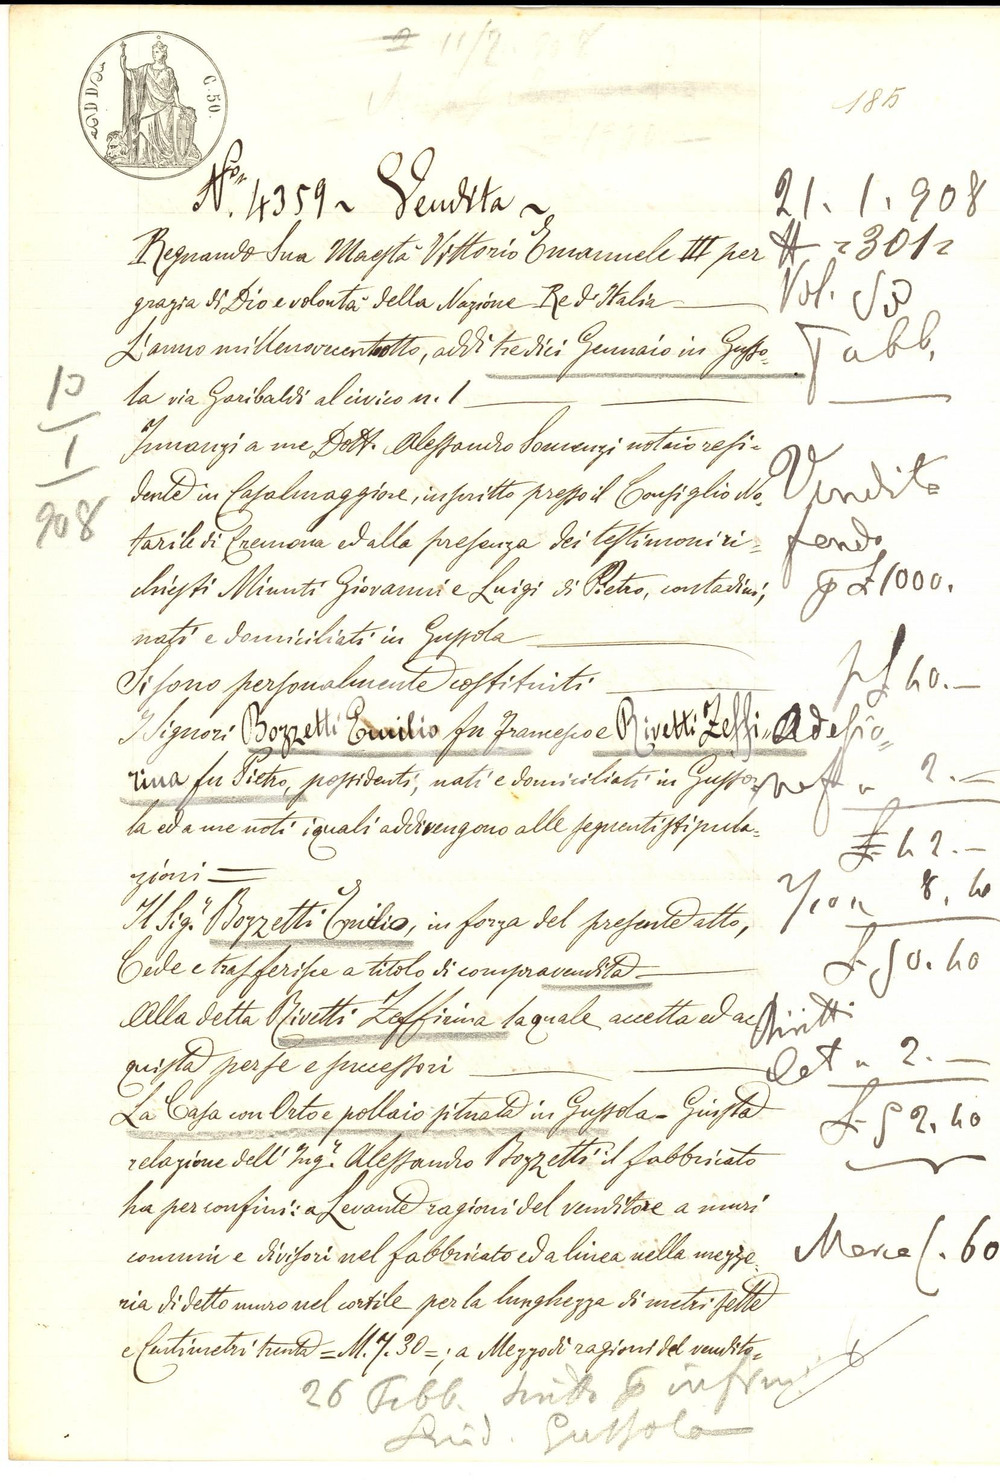 185
C. 50.
Nº. 4359 ~ Vendita ~
Regnando Sua Maestà Vittorio Emanuele III per
grazia di Dio e volontà della Nazione Re d'Italia
L'anno millenovecentotto, addi tredici Gennaio in Gusso-
la via Garibaldi al civico n. 1
Innanzi a me Dott. Alessandro Somenzi notaio resi-
dente in Casalmaggiore, inscritto presso il Consiglio No-
tarile di Cremona ed alla presenza dei testimoni ri-
chiesti Minuti Giovanni e Luigi di Pietro, contadini,
nati e domiciliati in Gussola
Si sono personalmente costituiti
I Signori Bozzetti Emilio fu Francesco e Rivetti Zeffi-
rina fu Pietro, possidenti, nati e domiciliati in Gusso-
la ed a me noti i quali addivengono alle seguenti stipula-
zioni =
Il Sig.r Bozzetti Emilio, in forza del presente atto,
Cede e trasferisce a titolo di compravendita
Alla detta Rivetti Zeffirina la quale accetta ed ac-
quista per se e successori
La Casa con Orto e pollaio situata in Gussola - Giusta
relazione dell' Ing.r Alessandro Bozzetti il fabbricato
ha per confini: a Levante ragioni del venditore a muri
comuni e divisori nel fabbricato ed a linea nella mezze-
ria di detto muro nel cortile per la lunghezza di metri sette
e Centimetri trenta = M. 7.30 =; a Mezzodi ragioni del vendito-
13
1
908
21. 1. 908
# = 301 =
Vol. 53
Fabb.
Vendita
fondo
p £ 1000.
p £ 40.-
2.-
£ 42.-
1/10 8.40
£ 50.40
Diritti
2.-
£ 52.40
Merce £. 60
26 Febb.
Gussola